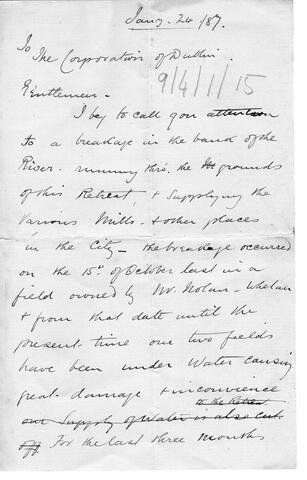 Jany. 24/87.
To
The Corporation of Dublin.
9/4/1/15
Gentlemen -
I beg to call your attention
to a breakage in the bank of the
River running thro' the grounds
of this Retreat, & Supplying the
Various Mills & other places
in the City - the breakage occurred
on the 15th of October last in a
field owned by Mr. Nolan - Whelan
& from that date until the
present time our two fields
have been under Water causing
great damage & inconvience
to the Retreat
our Supply of Water is also cut
off For the last three months